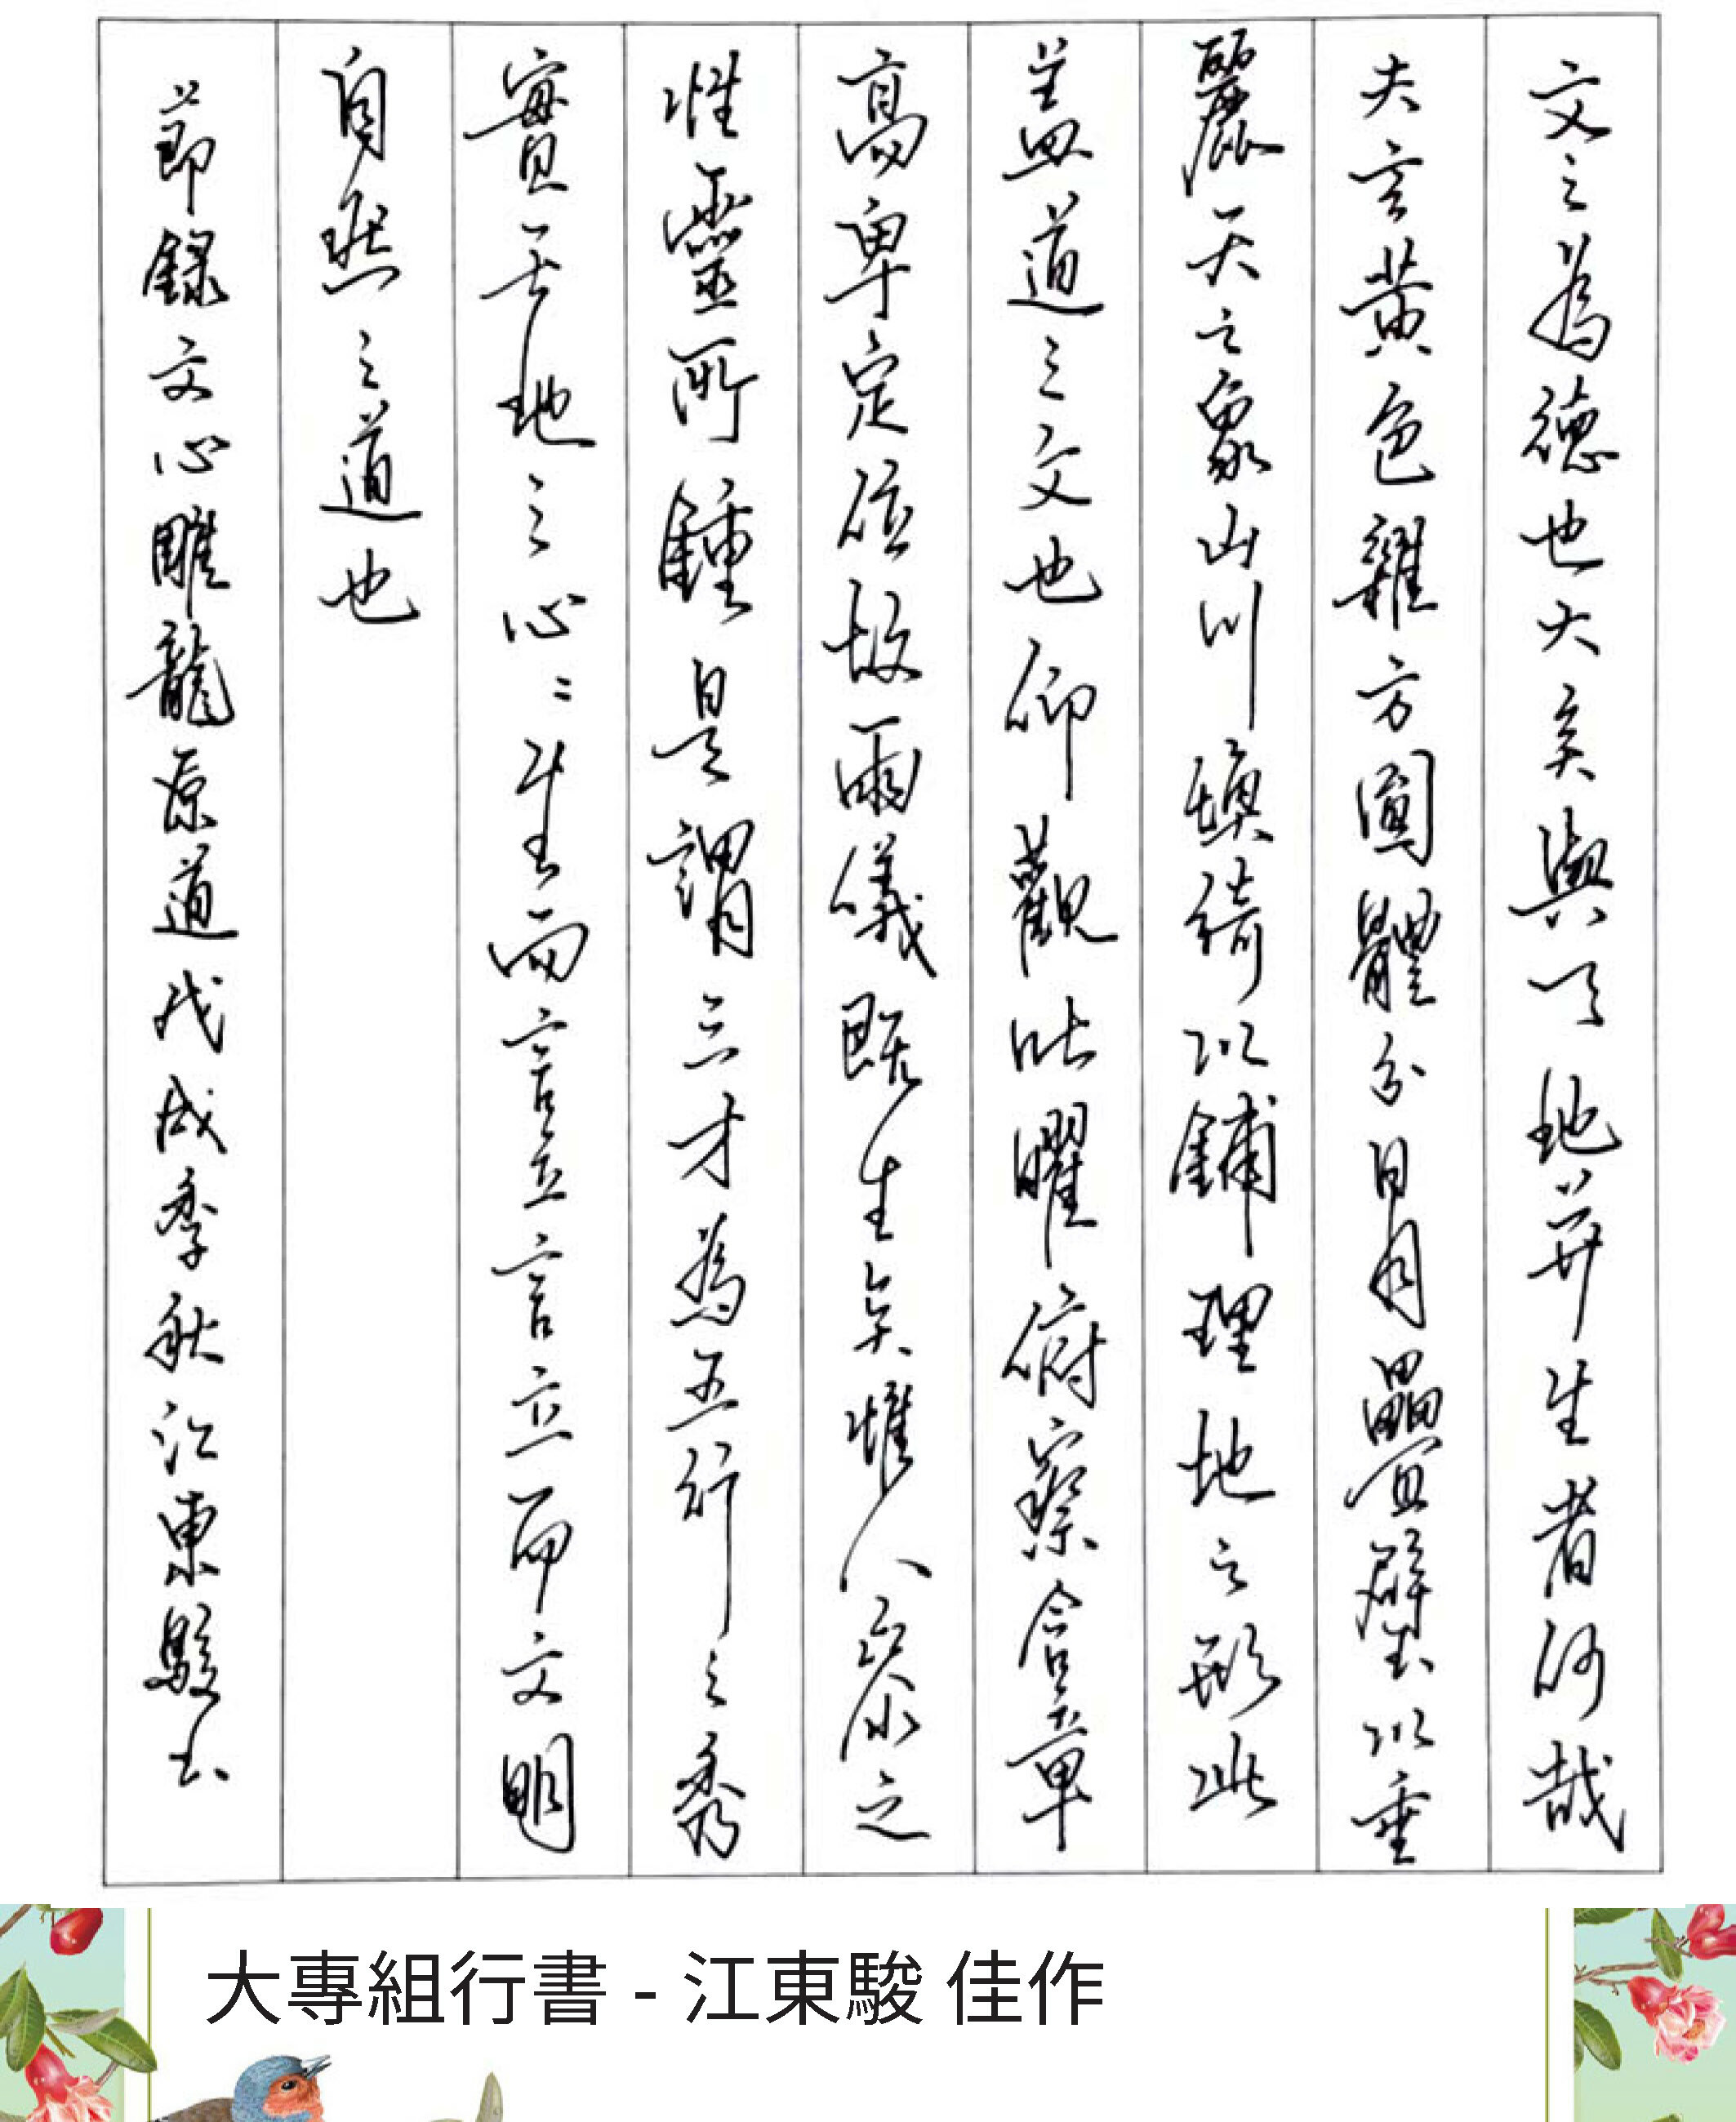 文之為德也大矣與天地並生者何哉
夫玄黃色雜方圓體分日月疊璧以垂
麗天之象山川煥綺以鋪理地之形此
蓋道之文也仰觀吐曜俯察含章
高卑定位故兩儀既生矣惟人參之
性靈所鍾是謂三才為五行之秀
實天地之心〻生而言立言立而文明
自然之道也
節錄文心雕龍原道戊戌季秋江東駿書
大專組行書 - 江東駿 佳作